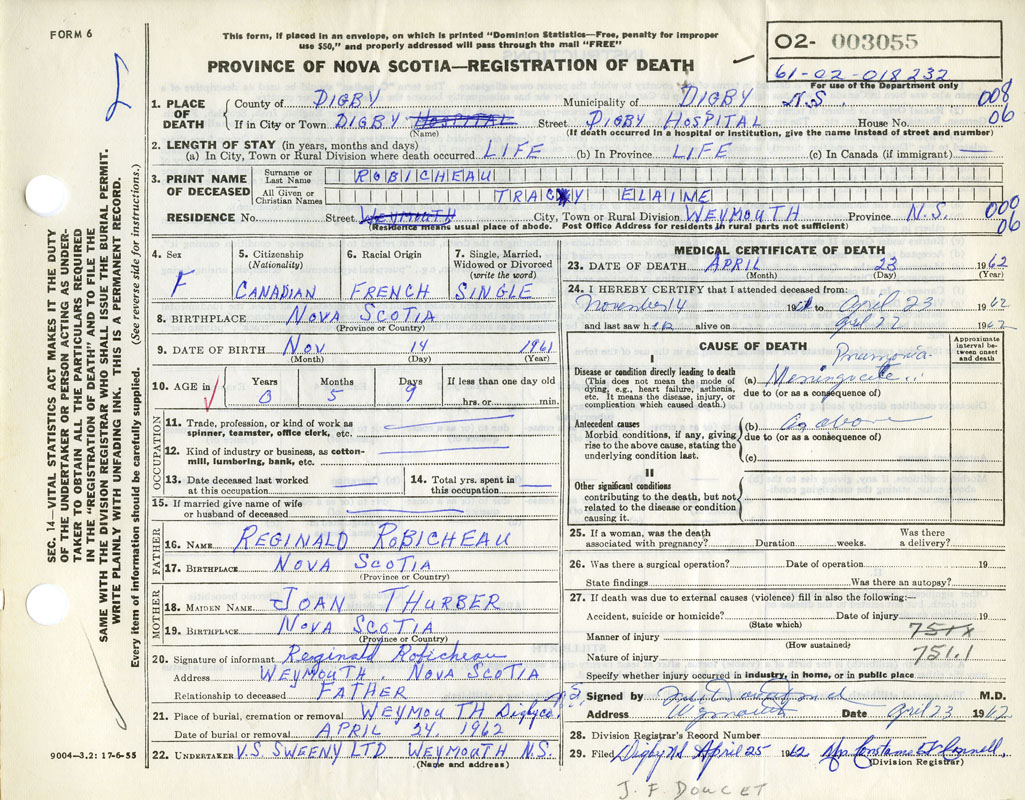 FORM 6
This form, if placed in an envelope, on which is printed "Dominion Statistics—Free, penalty for improper
use $50," and properly addressed will pass through the mail "FREE"
PROVINCE OF NOVA SCOTIA—REGISTRATION OF DEATH
02- 003055
61-02-018232
For use of the Department only
SEC. 14—VITAL STATISTICS ACT MAKES IT THE DUTY
OF THE UNDERTAKER OR PERSON ACTING AS UNDER-
TAKER TO OBTAIN ALL THE PARTICULARS REQUIRED
IN THE "REGISTRATION OF DEATH" AND TO FILE THE
SAME WITH THE DIVISION REGISTRAR WHO SHALL ISSUE THE BURIAL PERMIT.
WRITE PLAINLY WITH UNFADING INK. THIS IS A PERMANENT RECORD.
Every item of information should be carefully supplied. (See reverse side for instructions.)
1. PLACE OF DEATH County of DIGBY Municipality of DIGBY N.S. 008
If in City or Town DIGBY HOSPITAL Street DIGBY HOSPITAL House No. 06
(Name) (If death occurred in a hospital or institution, give the name instead of street and number)
2. LENGTH OF STAY (in years, months and days)
(a) In City, Town or Rural Division where death occurred LIFE (b) In Province LIFE (c) In Canada (if immigrant) —
3. PRINT NAME OF DECEASED Surname or Last Name ROBICHEAU
All Given or Christian Names TRACY ELAINE
RESIDENCE No. Street WEYMOUTH City, Town or Rural Division WEYMOUTH Province N.S. 000
(Residence means usual place of abode. Post Office Address for residents in rural parts not sufficient) 06
4. Sex F
5. Citizenship (Nationality) CANADIAN
6. Racial Origin FRENCH
7. Single, Married, Widowed or Divorced (write the word) SINGLE
8. BIRTHPLACE NOVA SCOTIA
(Province or Country)
9. DATE OF BIRTH NOV 14 1961
(Month) (Day) (Year)
10. AGE in Years Months Days If less than one day old
0 5 9 hrs. or min.
OCCUPATION
11. Trade, profession, or kind of work as
spinner, teamster, office clerk, etc.
12. Kind of industry or business, as cotton-
mill, lumbering, bank, etc.
13. Date deceased last worked
at this occupation
14. Total yrs. spent in
this occupation
15. If married give name of wife
or husband of deceased
FATHER
16. NAME REGINALD ROBICHEAU
17. BIRTHPLACE NOVA SCOTIA
(Province or Country)
MOTHER
18. MAIDEN NAME JOAN THURBER
19. BIRTHPLACE NOVA SCOTIA
(Province or Country)
20. Signature of informant Reginald Robicheau
Address WEYMOUTH, NOVA SCOTIA
Relationship to deceased FATHER
21. Place of burial, cremation or removal WEYMOUTH Digby co. N.S.
Date of burial or removal APRIL 24, 1962
22. UNDERTAKER V.S. SWEENY LTD WEYMOUTH N.S.
(Name and address)
9004—3.2: 17-6-55
MEDICAL CERTIFICATE OF DEATH
23. DATE OF DEATH APRIL 23 1962
(Month) (Day) (Year)
24. I HEREBY CERTIFY that I attended deceased from:
November 14 1961 to April 23 1962
and last saw her alive on April 22 1962
CAUSE OF DEATH
Approximate interval between onset and death
I
Disease or condition directly leading to death
(This does not mean the mode of
dying, e.g., heart failure, asthenia,
etc. It means the disease, injury, or
complication which caused death.)
Pneumonia
(a) Meningocele
due to (or as a consequence of)
Antecedent causes
Morbid conditions, if any, giving
rise to the above cause, stating the
underlying condition last.
(b) as above
due to (or as a consequence of)
(c)
II
Other significant conditions
contributing to the death, but not
related to the disease or condition
causing it.
25. If a woman, was the death
associated with pregnancy? Duration weeks. Was there a delivery?
26. Was there a surgical operation? Date of operation 19
State findings Was there an autopsy?
27. If death was due to external causes (violence) fill in also the following:—
Accident, suicide or homicide? Date of injury 19
(State which)
Manner of injury
(How sustained)
Nature of injury 751.1
Specify whether injury occurred in industry, in home, or in public place
Signed by M.D.
Address Weymouth Date April 23 1962
28. Division Registrar's Record Number
29. Filed Digby April 25 1962
(Division Registrar)
J. F. DOUCET